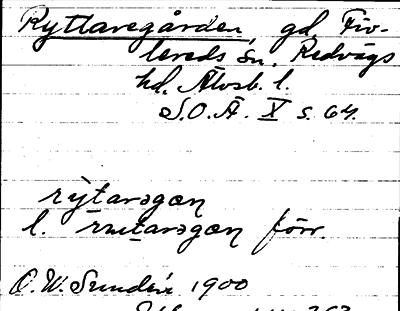 Ryttaregården, gd, Fiv-
lereds sn. Redvägs
hd. Älvsb. l.
S.O.Ä. X s. 64.
rỳtarəgɑn
l. rɯtarəgɑn förr.
O.W. Sundén 1900